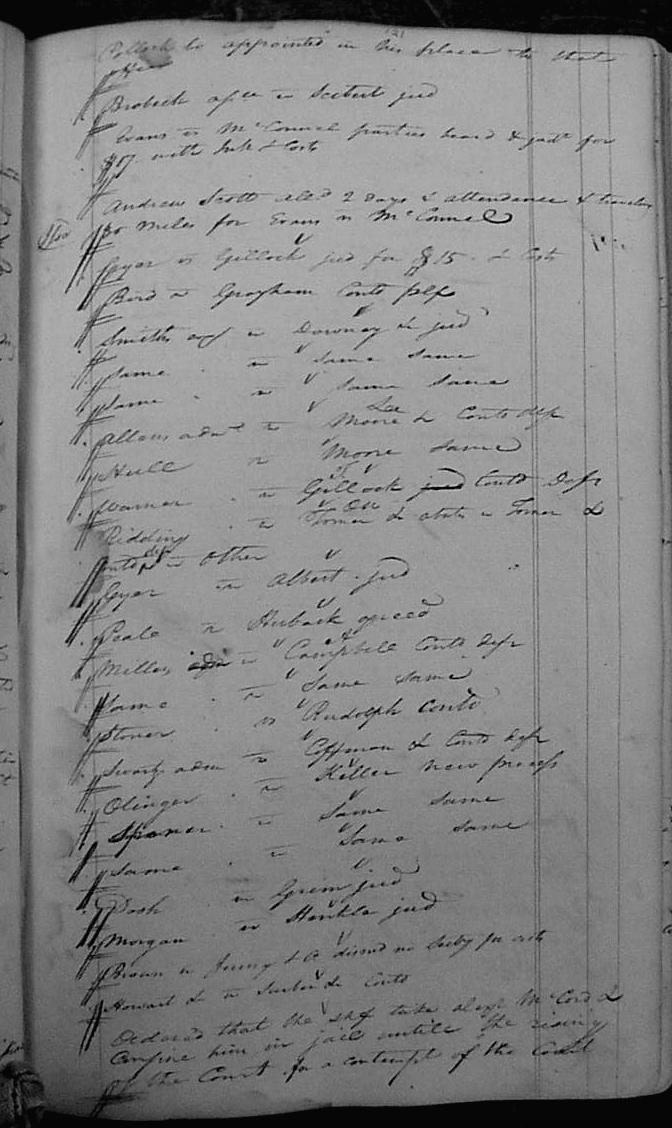 Pollock be appointed in his place to that
office
Brobeck assee vs Seibert jud
Evans vs McConnel parties heard & jadt for
$17 with Int & Costs
Andrew Scott alld 2 days & attendance & traveling
30 miles for Evans vs McConnel
Gyer vs Gillock jud for $15 & Costs
Bird vs Grayham Contd plf
Smiths vs Downey &c jud
same vs same same
same vs same same
Allens adm vs Moore & Contd defs
Hull vs Moore same
Warner vs Gillock jud Contd Deft
Ridding vs Toner & others vs Toner &
other
Gyer vs Albert jud
Peale vs agreed
Miller adm vs Campbell Contd deft
same vs same same
Stoner vs Rudolph Contd
Swartz adm vs Coffman & Contd deft
Olinger vs Keller new process
vs same same
same vs same same
vs Grim jud
Morgan vs Henkle jud
Brown vs & Co dismd no Secty for costs
Howard & vs Contd
Ordered that the shff take McCord &
Confine him in jail untill the rising
of the Court for a contempt of the Court